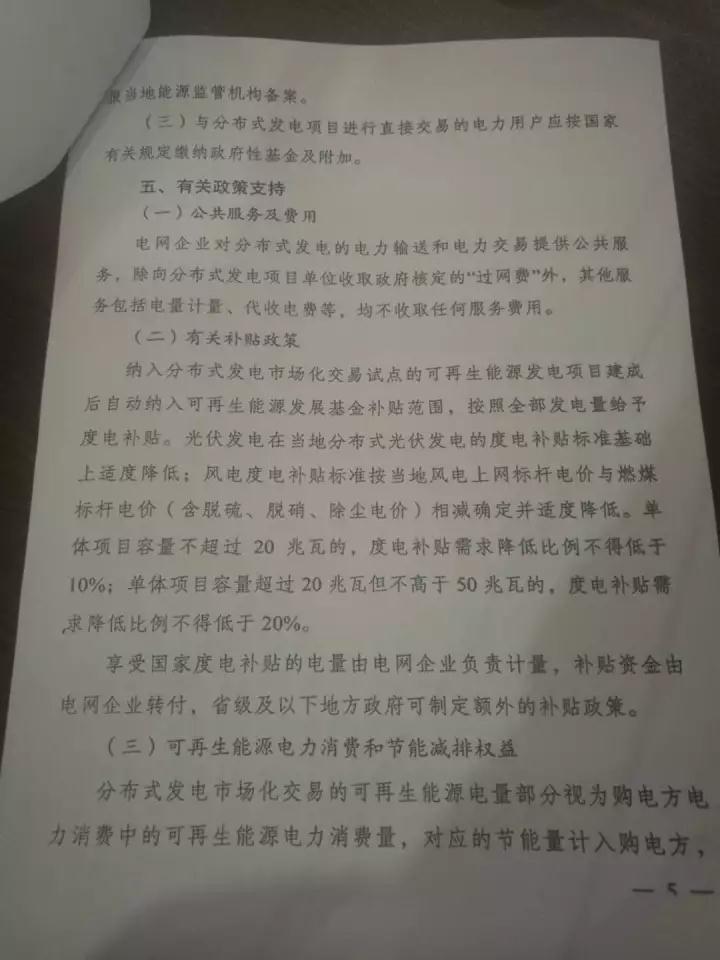 报当地能源监管机构备案。
（三）与分布式发电项目进行直接交易的电力用户应按国家
有关规定缴纳政府性基金及附加。
五、有关政策支持
（一）公共服务及费用
电网企业对分布式发电的电力输送和电力交易提供公共服
务，除向分布式发电项目单位收取政府核定的“过网费”外，其他服
务包括电量计量、代收电费等，均不收取任何服务费用。
（二）有关补贴政策
纳入分布式发电市场化交易试点的可再生能源发电项目建成
后自动纳入可再生能源发展基金补贴范围，按照全部发电量给予
度电补贴。光伏发电在当地分布式光伏发电的度电补贴标准基础
上适度降低；风电度电补贴标准按当地风电上网标杆电价与燃煤
标杆电价（含脱硫、脱硝、除尘电价）相减确定并适度降低。单
体项目容量不超过 20 兆瓦的，度电补贴需求降低比例不得低于
10%；单体项目容量超过 20 兆瓦但不高于 50 兆瓦的，度电补贴需
求降低比例不得低于 20%。
享受国家度电补贴的电量由电网企业负责计量，补贴资金由
电网企业转付，省级及以下地方政府可制定额外的补贴政策。
（三）可再生能源电力消费和节能减排权益
分布式发电市场化交易的可再生能源电量部分视为购电方电
力消费中的可再生能源电力消费量，对应的节能量计入购电方，
— 5 —